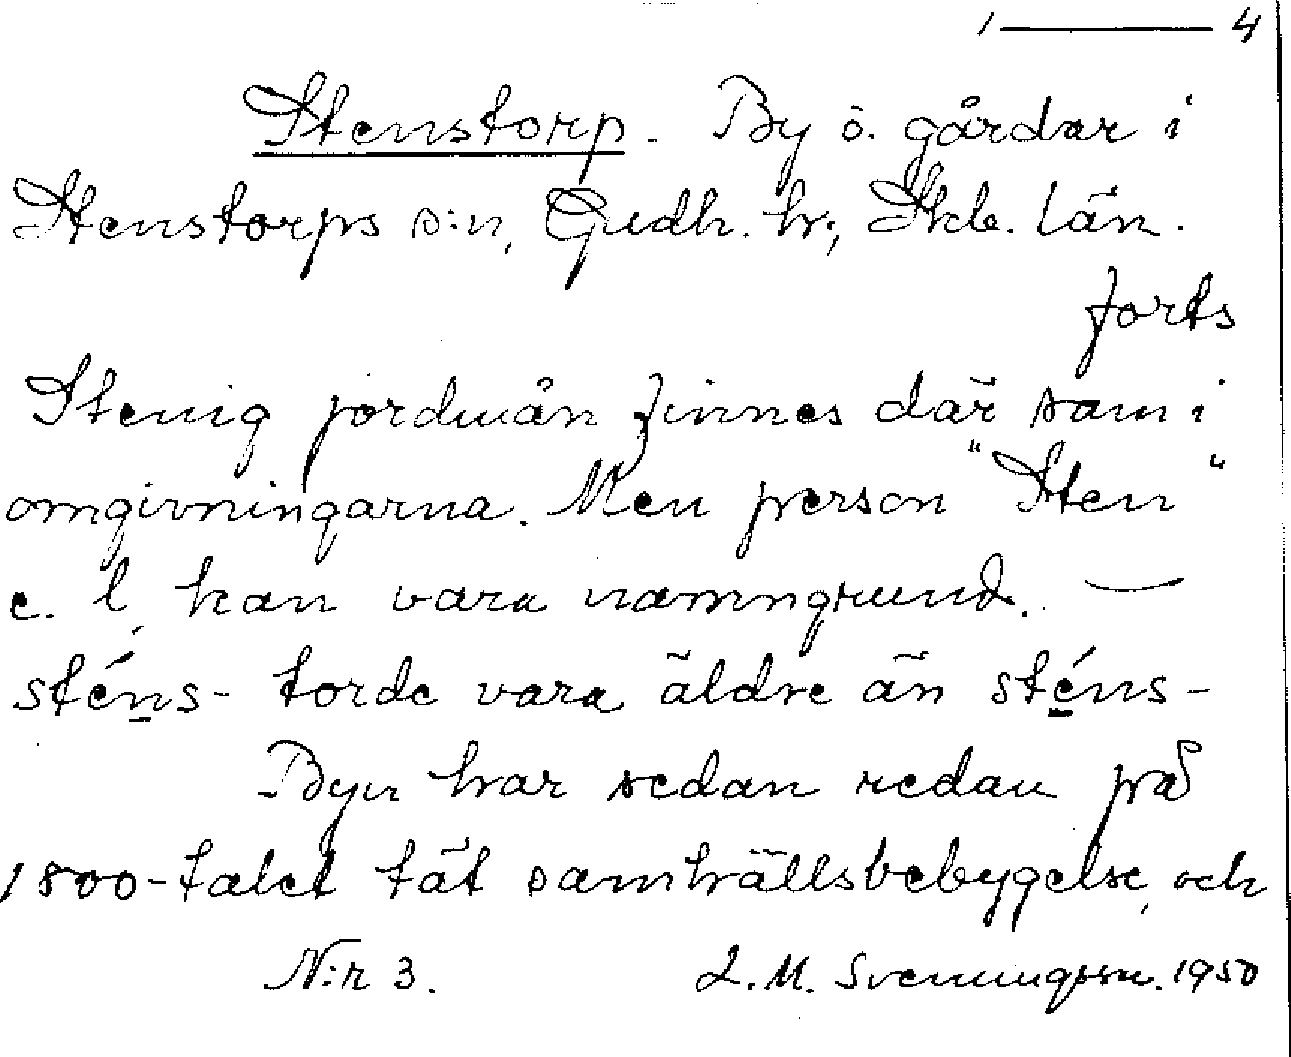 1 — 4
Stenstorp. By o. gårdar i
Stenstorps s:n, Gudh. hr; Skb. län.
forts
Stenig jordmån finnes där som i
omgivningarna. Men person "Sten"
e. l. kan vara namngrund. —
sténs- torde vara äldre än sténs-
Byn har sedan redan på
1800-talet tät samhällsbebygelse, och
N:r 3. L. M. Svenungsson. 1950